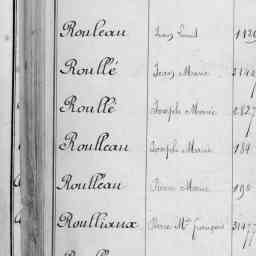 Rouleau Jean Louis
Roullé Jean Marie
Roullé Joseph Marie 2827
Roulleau Joseph Marie 184
Roulleau Pierre Marie 190
Roulliaux Pierre Me françois